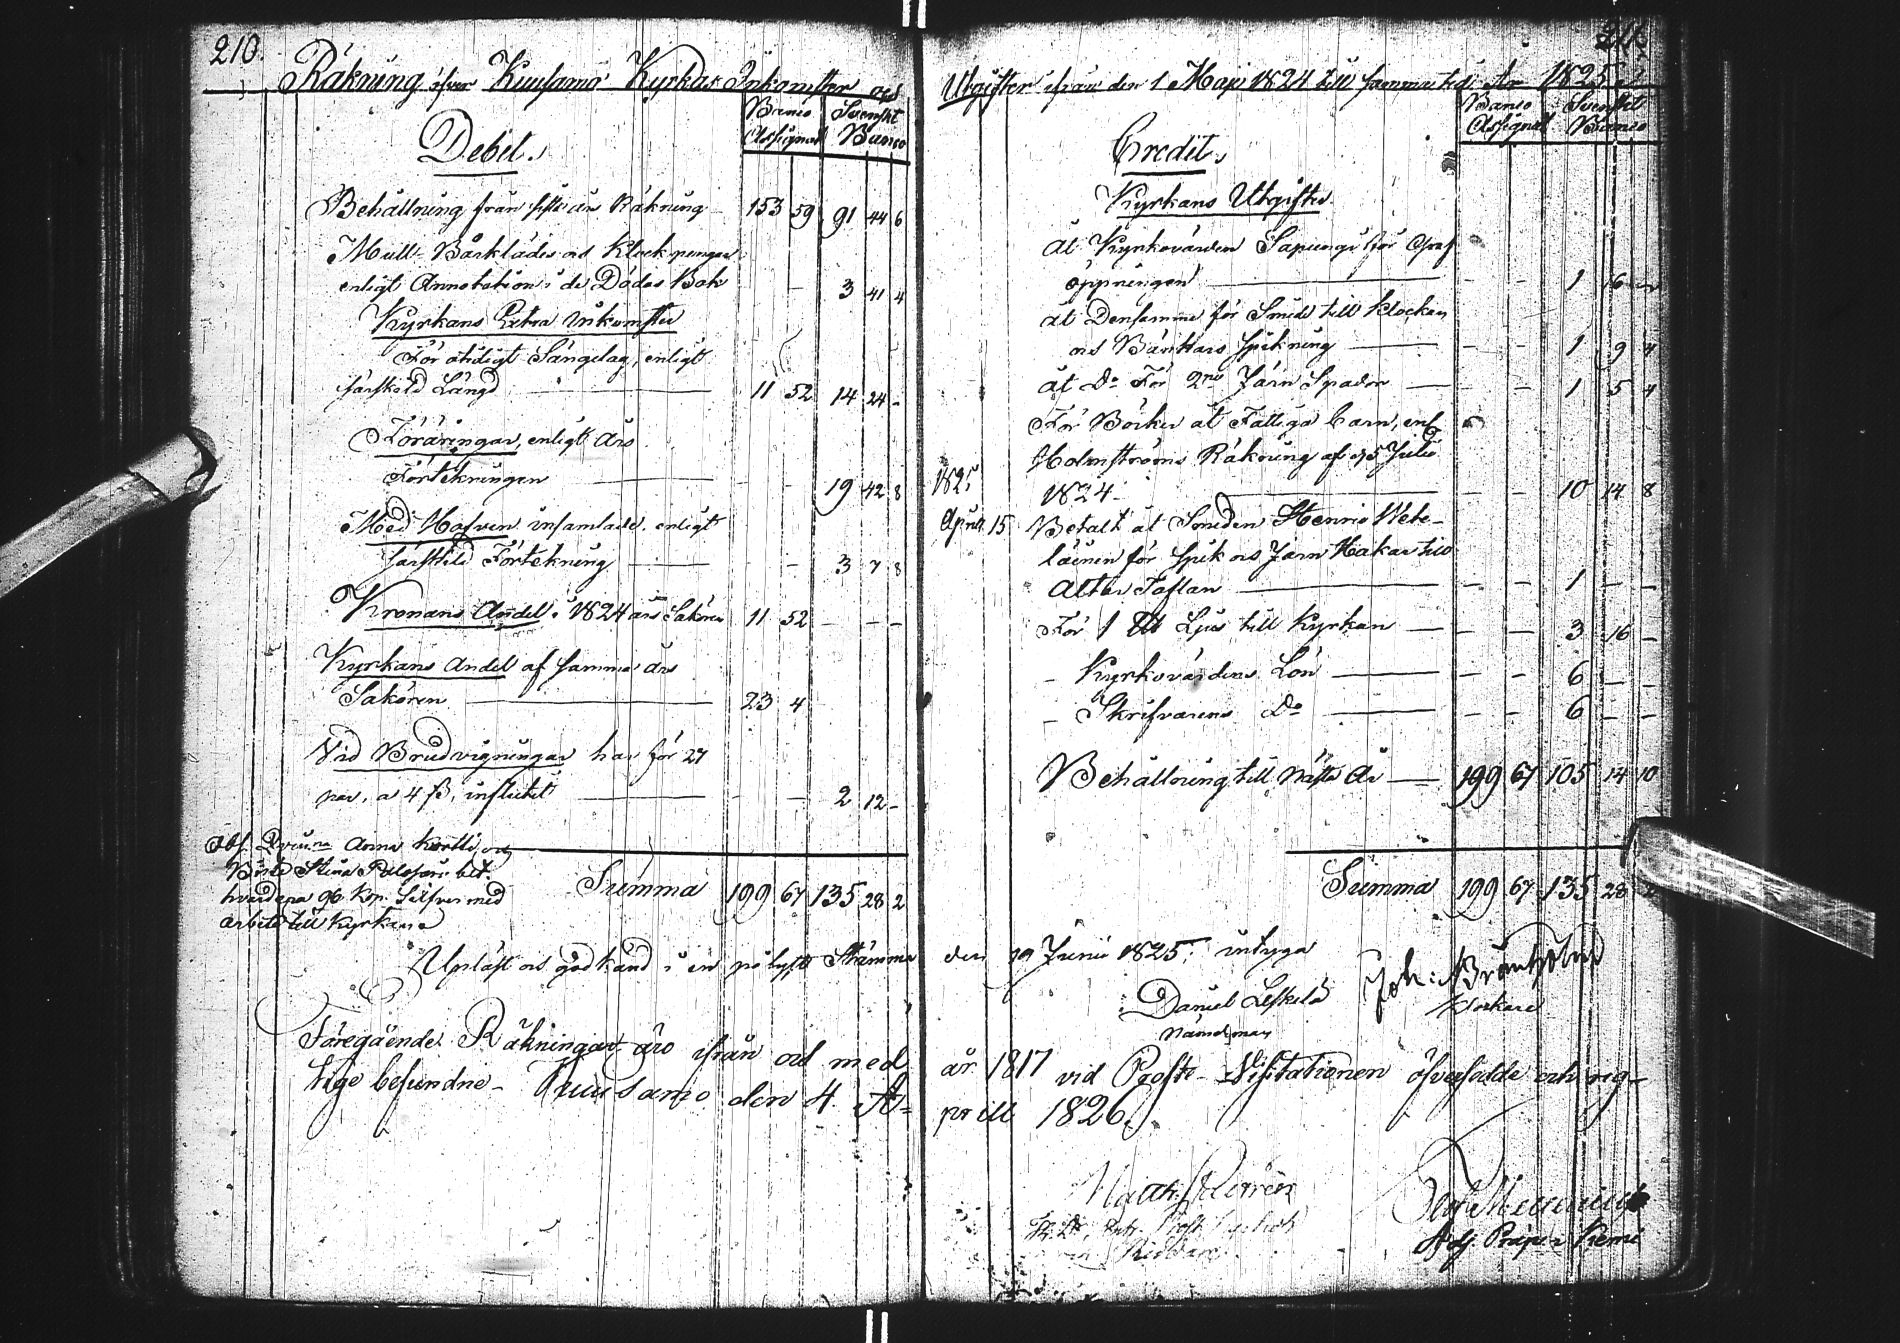 210.
Räkning öfver Kuusamo Kyrkas Inkomster och
Banco Assignat
Svenskt Banco
Debet.
Behållning från sista års Räkning 153 59 91 44 6
Mull- Bårklädes och Klockpengar
enligt Annotation i de Dödas Bok - - 3 41 4
Kyrkans Extra Inkomster
För otidigt Sängelag, enligt
särskild Längd 11 52 14 24 -
Föräringar, enligt års
Förtekningen - - 19 42 8
Med Hofven insamlade, enligt
särskild Förtekning - - 3 7 8
Kronans Andel i 1824 års Saköre 11 52 - - -
Kyrkans Andel af samma års
Saköre 23 4
Vid Brudvigningar har för 27
par, a 4 ß, influtit - - 2 12 -
Obs. Anna och
Stina bet.
hvardera 96 Kop. Silfver med
arbete till Kyrkan
Summa 199 67 135 28 2
Upläst och godkänd i en pålyst Stämma
Föregående Räkningar äro ifrån och med
tige befundne - Kuusamo den 4 A=
211.
Utgifter ifrån den 1 Maji 1824 till samma tid År 1825.
Banco Assignat
Svenskt Banco
Credit.
Kyrkans Utgifter
åt Kyrkovärden för Graf
öppningen - - 1 16 -
åt Densamme för Smide till Klockan
och Bänkars spikning - - 1 9 4
åt Do För 2ne Järn Spador - - 1 5 4
För Böcker åt Fattiga Barn, enl.
Holmströms Räkning af d. 5 Julii
1824 - - 10 14 8
1825
April 15 Betalt åt Smeden Henric Wete-
läinen för spik och Jern Hakar till
Altar Taflan - - 1 - -
För 1 ℔ Ljus till Kyrkan - - 3 16 -
- Kyrkovärdens Lön - - 6 - -
- Skrifvarens Do - - 6 - -
Behållning till nästa År 199 67 105 14 10
Summa 199 67 135 28 2
den 19 Junii 1825, intyga
Daniel
Nämdeman
Joh: Brönholm
Klockare
år 1817 vid Prosts-Visitationen öfversedde och rig-
prill 1826.
Matth.
Adj. Præpos. i Kemi